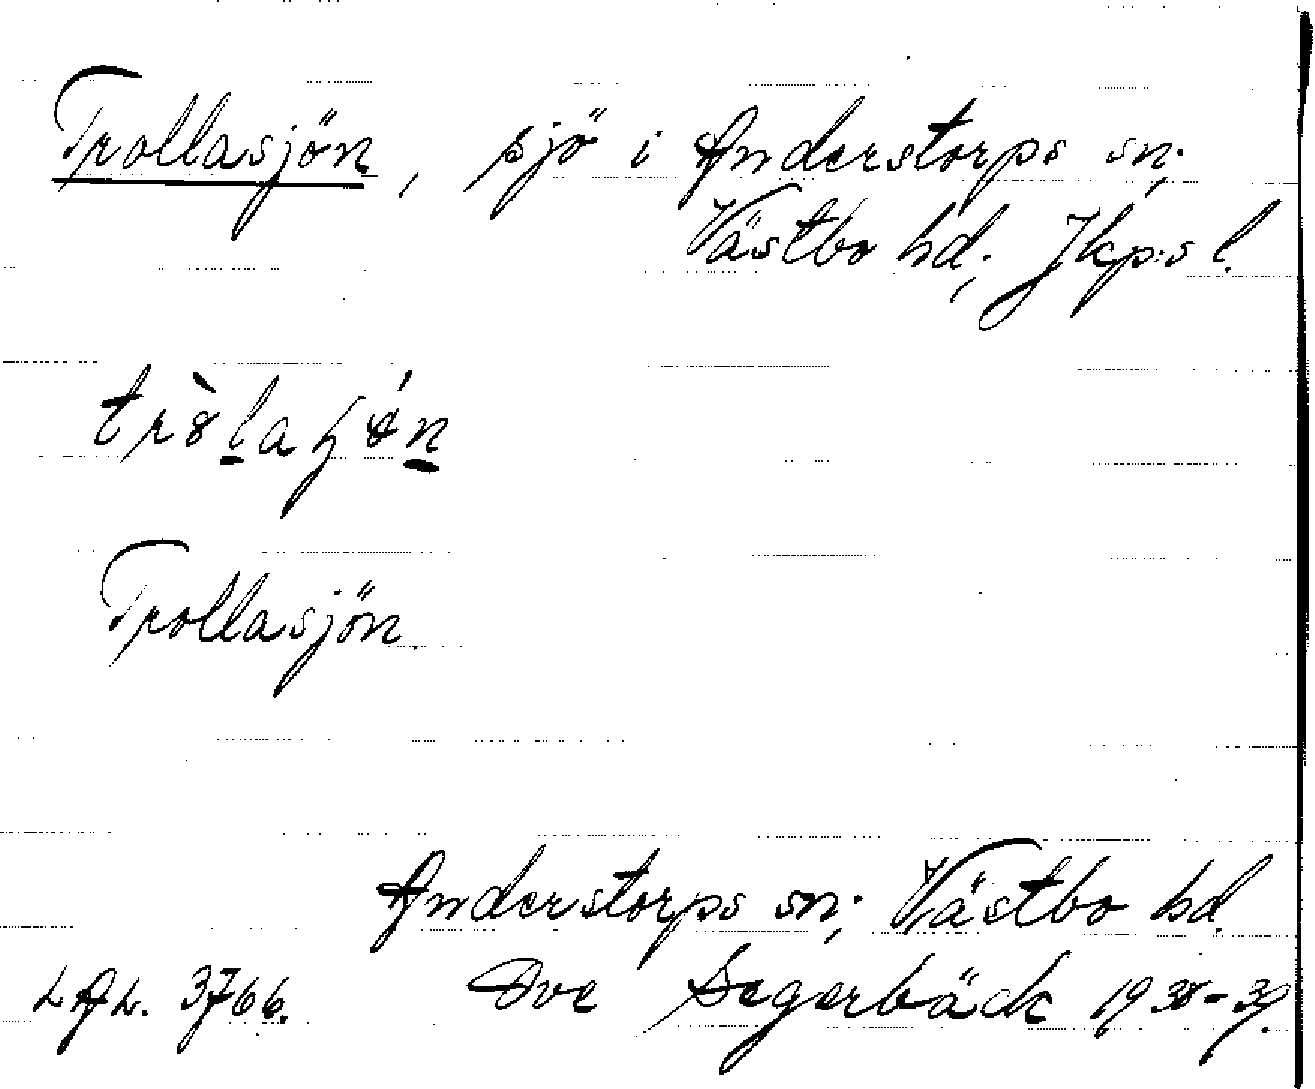 Trollasjön, sjö i Anderstorps sn;
Västbo hd; Jkp:s l.
Trollasjön
Anderstorps sn; Västbo hd.
LAL. 3766. Ove Segerbäck 1938-39.